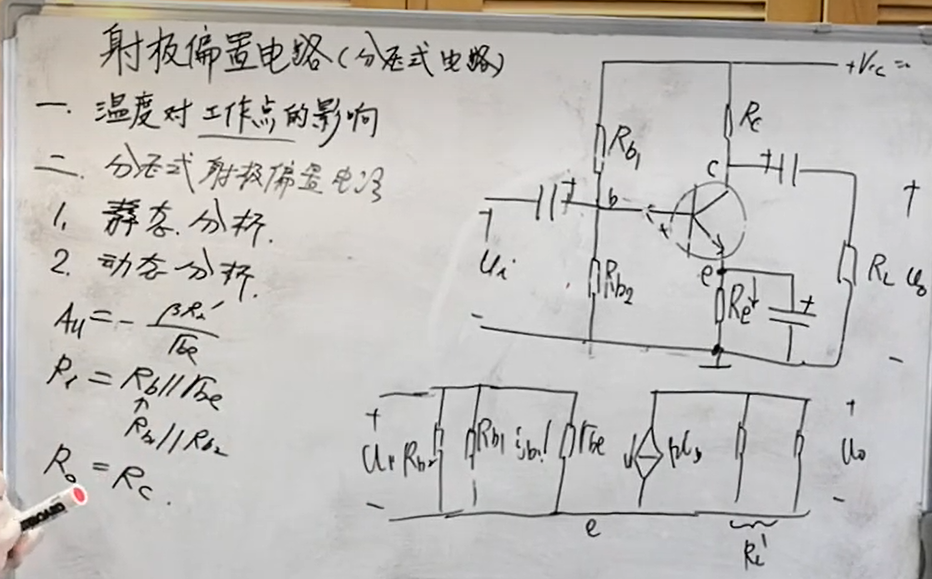 射极偏置电路(分压式电路)
一. 温度对工作点的影响
二. 分压式射极偏置电路
1. 静态分析.
2. 动态分析.
Au = - βRL' / rbe
Ri = Rb // rbe
↑
Rb1 // Rb2
Ro = Rc.
+Vcc =
Rb1
Rc
c
+
+
b
+
Ui
-
Rb2
e
Re
+
RL
+
Uo
-
+
Ui
-
Rb2
Rb1
ib
rbe
βib
+
Uo
-
e
RL'